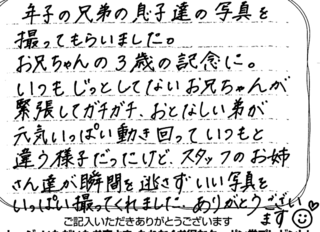 年子の兄弟の息子達の写真を
撮ってもらいました。
お兄ちゃんの3歳の記念に。
いつもじっとしてないお兄ちゃんが
緊張してガチガチ、おとなしい弟が
元気いっぱい動き回っていつもと
違う様子だったけど、スタッフのお姉
さん達が瞬間を逃さずいい写真を
いっぱい撮ってくれました。ありがとうござい
ます☺
ご記入いただきありがとうございます